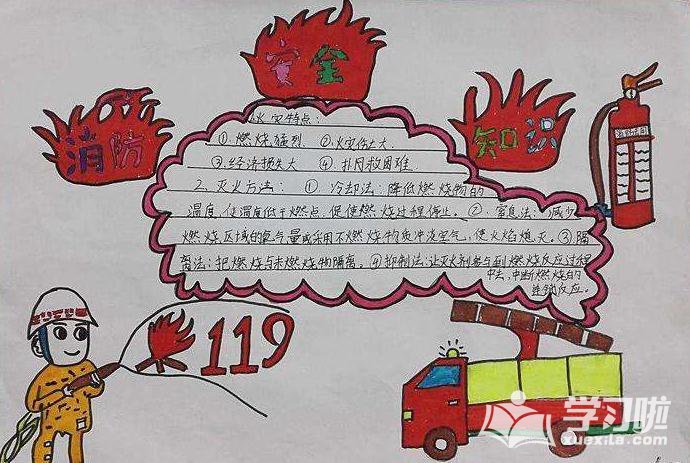 消防
安全
知识
火灾特点:
①燃烧猛烈 ②火灾伤亡大
③经济损失大 ④扑救困难.
2、灭火方法: ① 冷却法:降低燃烧物的
温度,使温度低于燃点,促使燃烧过程停止。②、窒息法:减少
燃烧区域的氧气量或采用不燃烧物质冲淡空气,使火焰熄灭。③隔
离法:把燃烧与未燃烧物隔离。④抑制法:让灭火剂参与到燃烧反应过程
中去,中断燃烧的
连锁反应。
119
学习啦
xuexila.com